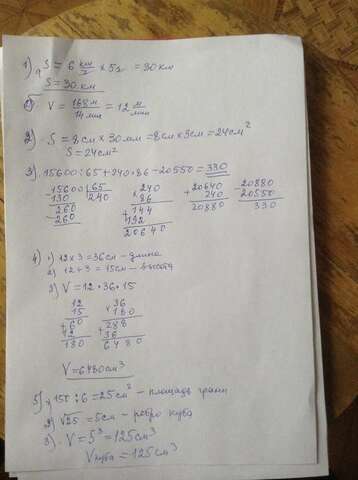 1) а) S = 6 км/ч × 5ч = 30 км
S = 30 км
б) V = 168 м / 14 мин = 12 м/мин
2) S = 8 см × 30 мм = 8 см × 3 см = 24 см²
S = 24 см²
3) 15600 : 65 + 240 · 86 - 20550 = 330
15600 | 65
130 240
260
- 260
× 240
86
144
+ 192
20640
+ 20640
240
20880
- 20880
20550
330
4) 1) 12 × 3 = 36 см - длина
2) 12 + 3 = 15 см - высота
3) V = 12 · 36 · 15
12
15
+ 60
12
180
× 36
180
+ 288
36
6480
V = 6480 см³
5) 1) 150 : 6 = 25 см² - площадь грани
2) √25 = 5 см - ребро куба
3) V = 5³ = 125 см³
V куба = 125 см³